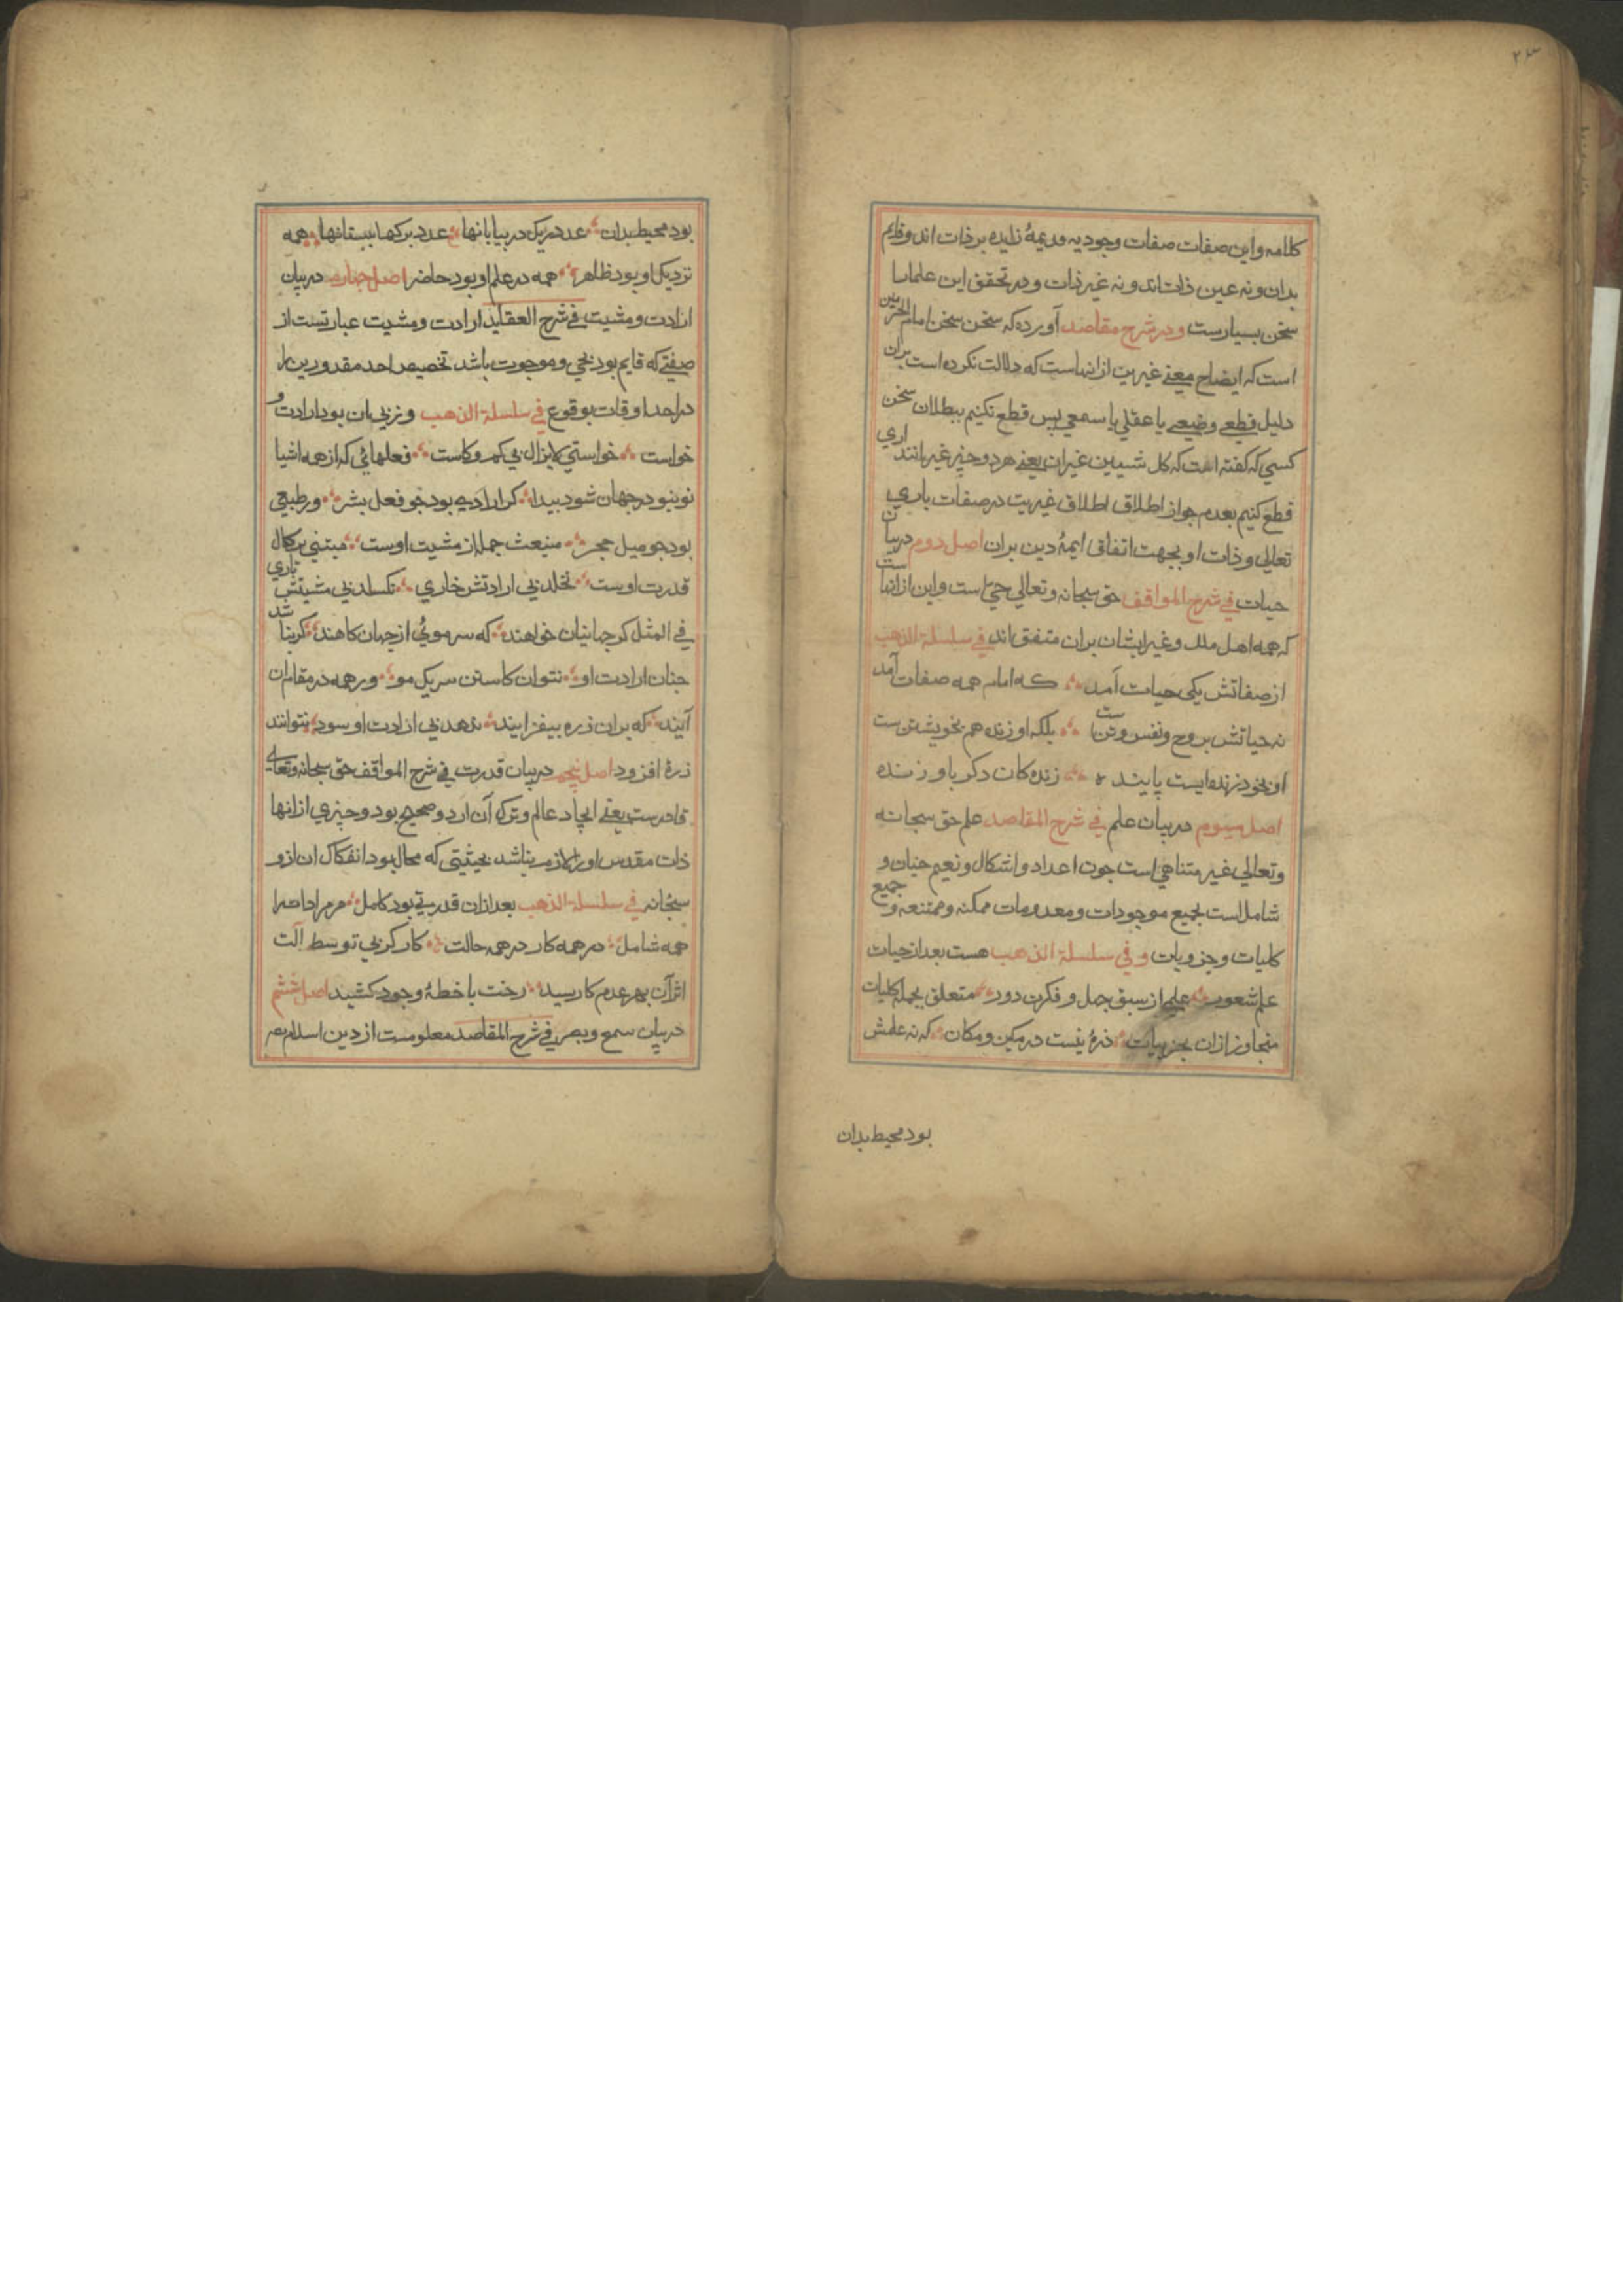 ۲۶۳
کلامه واین صفات صفات وجودیه قدیمهٔ زایده بر ذات اند وقایم
بدان ونه عین ذات اند ونه غیر ذات ودر تحقق این علما را
سخن بسیارست ودر شرح مقاصد آورده که سخن سخن امام الحرمین
است که ایضاح معنی غیریت از انهاست که دلالت نکرده است بران
دلیل قطعی وضیعی یا عقلی یا سمعی پس قطع نکنیم ببطلان سخن
کسی که کفته است که کل شیيین غیران یعنی هر دو چیز غیرانند اری
قطع کنیم بعدم جواز اطلاق اطلاق غیریت در صفات باری
تعالی وذات او بجهت اتفاق ایمهٔ دین بران اصل دوم در بیان
حیات فی شرح المواقف حق سبحانه وتعالی حی است واین از انهاست
که همه اهل ملل وغیر ایشان بران متفق اند فی سلسلة الذهب
از صفاتش یکی حیات آمد که امام همه صفات آمد
نه حیاتش بروح ونفس وتن است بلکه او زنده هم بخویشتن ست
او بخود زنده ایست پاینده زنده کان دکر باو زنده
اصل سیوم در بیان علم فی شرح المقاصد علم حق سبحانه
وتعالی غیر متناهی است جون اعداد واشکال ونعیم جنان و
شامل است بجمیع موجودات ومعدومات ممکنه وممتنعه و جمیع
کلیات وجزویات و فی سلسلة الذهب هست بعد از حیات
علم شعور علمی از سبق جهل وفکرت دور متعلق بجمله کلیات
متجاوز ازان بجزییات ذرهٔ نیست در مکین ومکان که نه علمش
بود محیط بدان
بود محیط بدان عدد ریک در بیابانها عدد برکها ببستانها همه
نزدیک او بود ظاهر همه در علم او بود حاضر اصل جهارم در بیان
ارادت ومشیت فی شرح العقاید ارادت ومشیت عبارتست از
صفتی که قایم بود بحی وموجب باشد تخصیص احد مقدورین را
در احد اوقات بوقوع فی سلسلة الذهب وز پی ان بود ارادت و
خواست خواستی لایزال بی کم وکاست فعلهائی که از همه اشیا
نوبنو در جهان شود بیدا کر ارادی بود جو فعل بشر ور طبیعی
بود جو میل حجر منبعث جمله از مشیت اوست مبتنی بر کمال
قدرت اوست نخلد بی ارادتش خاری نکسلد بی مشیتش تاری
فی المثل کر جهانیان خواهند که سر موئی از جهان کاهند کر نباشد
جنان ارادت او نتوان کاستن سر یک مو ور همه در مقام ان
آیند که بران ذره بیفزایند ندهد بی ارادت او سود نتوانند
ذرهٔ افزود اصل پنجم در بیان قدرت فی شرح المواقف حق سبحانه وتعالی
قادرست یعنی ایجاد عالم وترک آن ازو صحیح بود وچیزی از انها
ذات مقدس اورا لازم نباشد بحیثیتی که محال بود انفکاک ان ازو
سبحانه فی سلسلة الذهب بعد ازان قدرتی بود کامل مر مرادات را
همه شامل در همه کار در همه حالت کار کر بی توسط آلت
اثر آن بهر عدم کا رسید رخت با خطهٔ وجود کشید اصل ششم
در بیان سمع وبصر فی شرح المقاصد معلومست از دین اسلام بصر